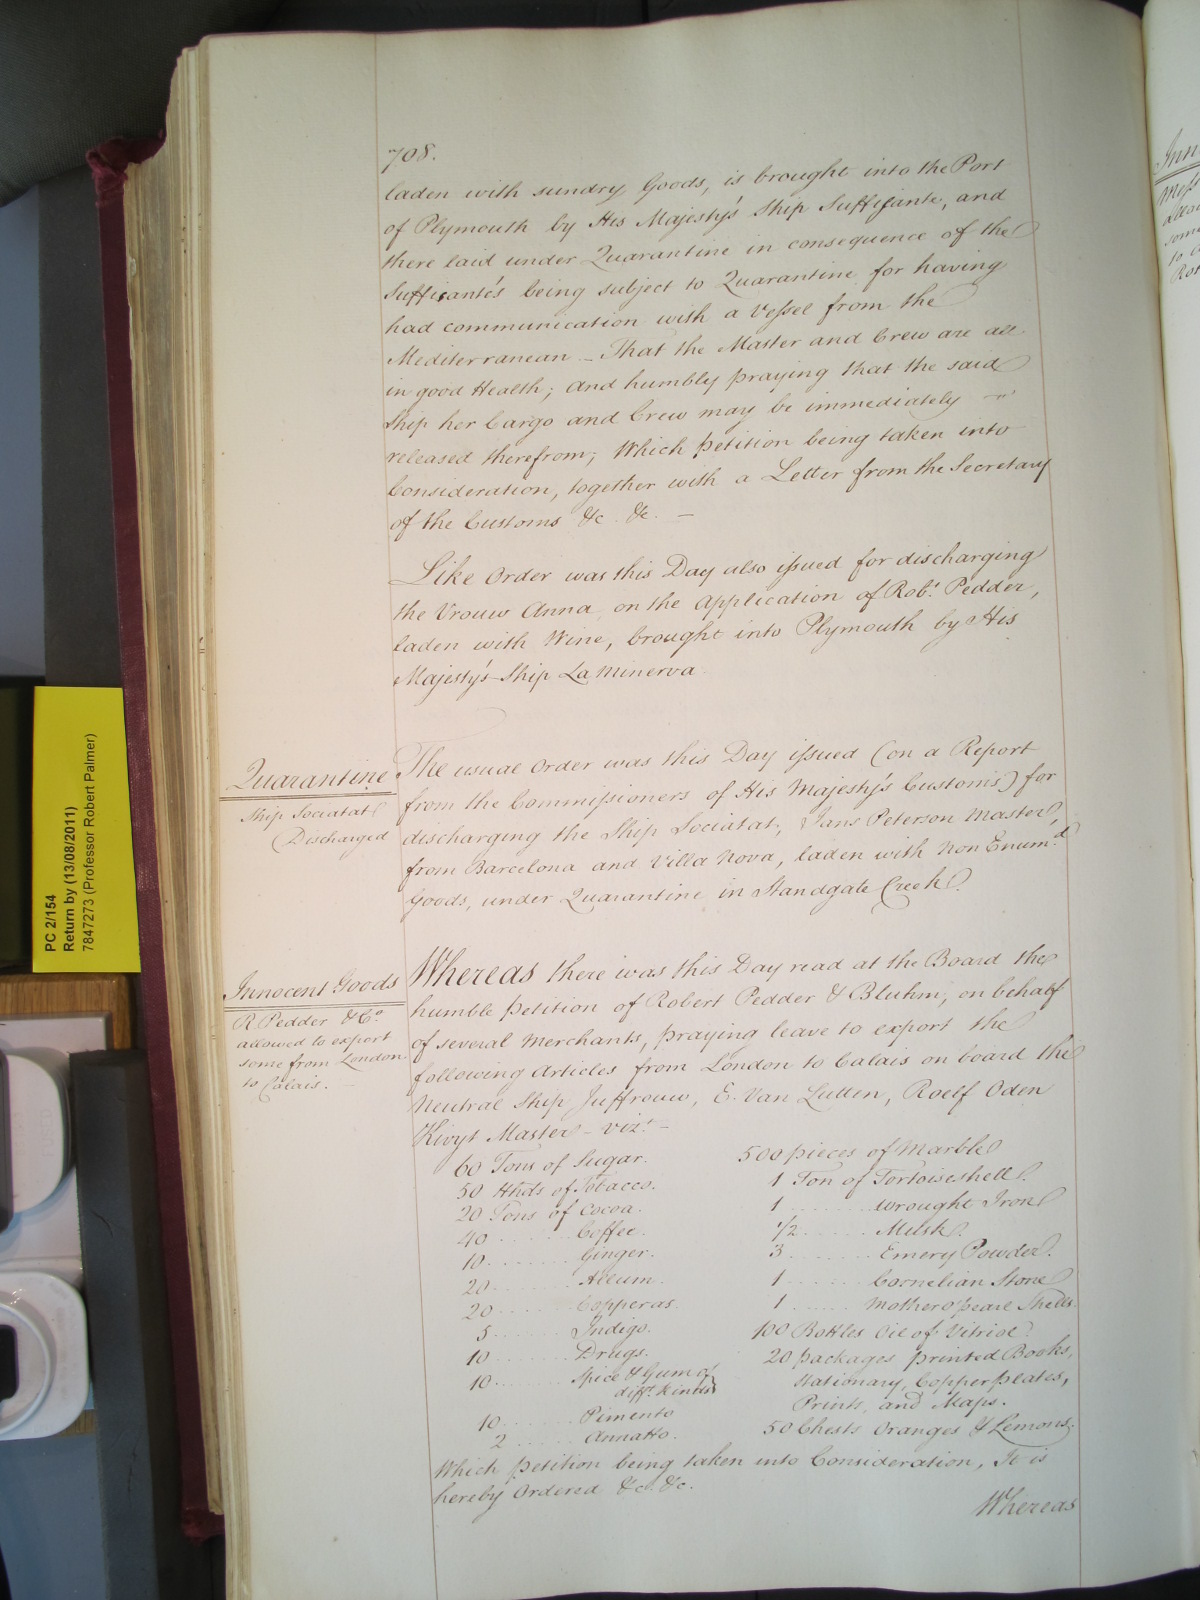 708.
laden with sundry Goods, is brought into the Port
of Plymouth by His Majesty's Ship Suffisante, and
there laid under Quarantine in consequence of the
Suffisante's being subject to Quarantine for having
had communication with a Vessel from the
Mediterranean - That the Master and Crew are all
in good Health; And humbly praying that the said
Ship her Cargo and Crew may be immediately
released therefrom; Which Petition being taken into
Consideration, together with a Letter from the Secretary
of the Customs &c. &c. -
Like Order was this Day also issued for discharging
the Vrouw Anna, on the Application of Robt. Pedder,
laden with Wine, brought into Plymouth by His
Majesty's Ship La Minerva
Quarantine
Ship Sociatat
Discharged
The usual Order was this Day issued (on a Report
from the Commissioners of His Majesty's Customs) for
discharging the Ship Sociatat, Jans Peterson Master,
from Barcelona and Villa Nova, laden with Non Enumd.
Goods, under Quarantine in Standgate Creek.
Innocent Goods
R. Pedder & Co.
allowed to export
some from London
to Calais. -
Whereas there was this Day read at the Board the
humble Petition of Robert Pedder & Bluhm, on behalf
of several Merchants, praying leave to export the
following Articles from London to Calais on board the
Neutral Ship Juffrouw, E. Van Lutten, Roelf Oden
Kivyt Master - vizt. -
60 Tons of Sugar.
50 Hhds of Tobacco.
20 Tons of Cocoa.
40 ...... Coffee.
10 ...... Ginger.
20 ...... Allum.
20 ...... Copperas.
5 ...... Indigo.
10 ...... Drugs.
10 ...... Spice & Gum of
difft. kinds
10 ...... Pimento
2 ...... Annatto.
500 pieces of Marble
1 Ton of Tortoiseshell.
1 ...... wrought Iron
1/2 ...... Musk.
3 ...... Emery Powder.
1 ...... Cornelian Stone
1 ...... Mother o'pearl Shells.
100 Bottles Oil of Vitriol.
20 packages printed Books,
Stationary, Copperplates,
Prints, and Maps.
50 Chests Oranges & Lemons.
Which Petition being taken into Consideration, It is
hereby Ordered &c. &c.
Whereas
PC 2/154
Return by (13/08/2011)
7847273 (Professor Robert Palmer)